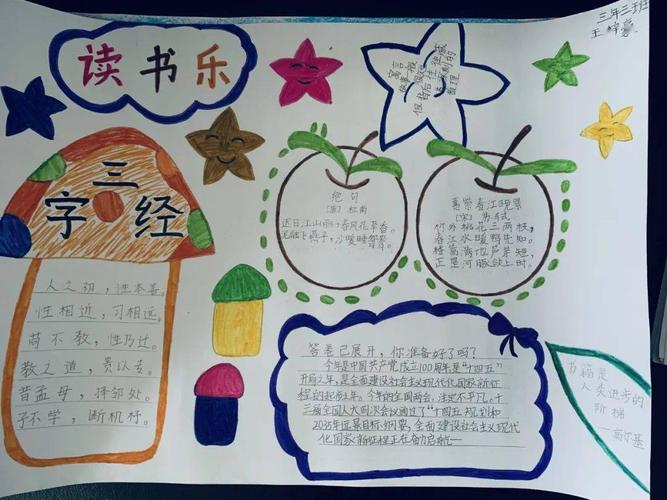 三年三班
王梓豪
读书乐
三字经
人之初，性本善。
性相近，习相远。
苟不教，性乃迁。
教之道，贵以专。
昔孟母，择邻处。
子不学，断机杼。
绝句
[唐]杜甫
迟日江山丽，春风花草香。
泥融飞燕子，沙暖睡鸳鸯。
惠崇春江晚景
[宋]苏轼
竹外桃花三两枝，
春江水暖鸭先知。
蒌蒿满地芦芽短，
正是河豚欲上时。
答卷已展开，你准备好了吗？
今年是中国共产党成立100周年是“十四五”
开局之年，是全面建设社会主义现代化国家新征
程的起步之年。今年的全国两会，注定不平凡。十
三届全国人大四次会议通过了“十四五”规划和
2035年远景目标纲要，全面建设社会主义现代
化国家新征程正在奋力启航
书籍是
人类进步的
阶梯
—高尔基